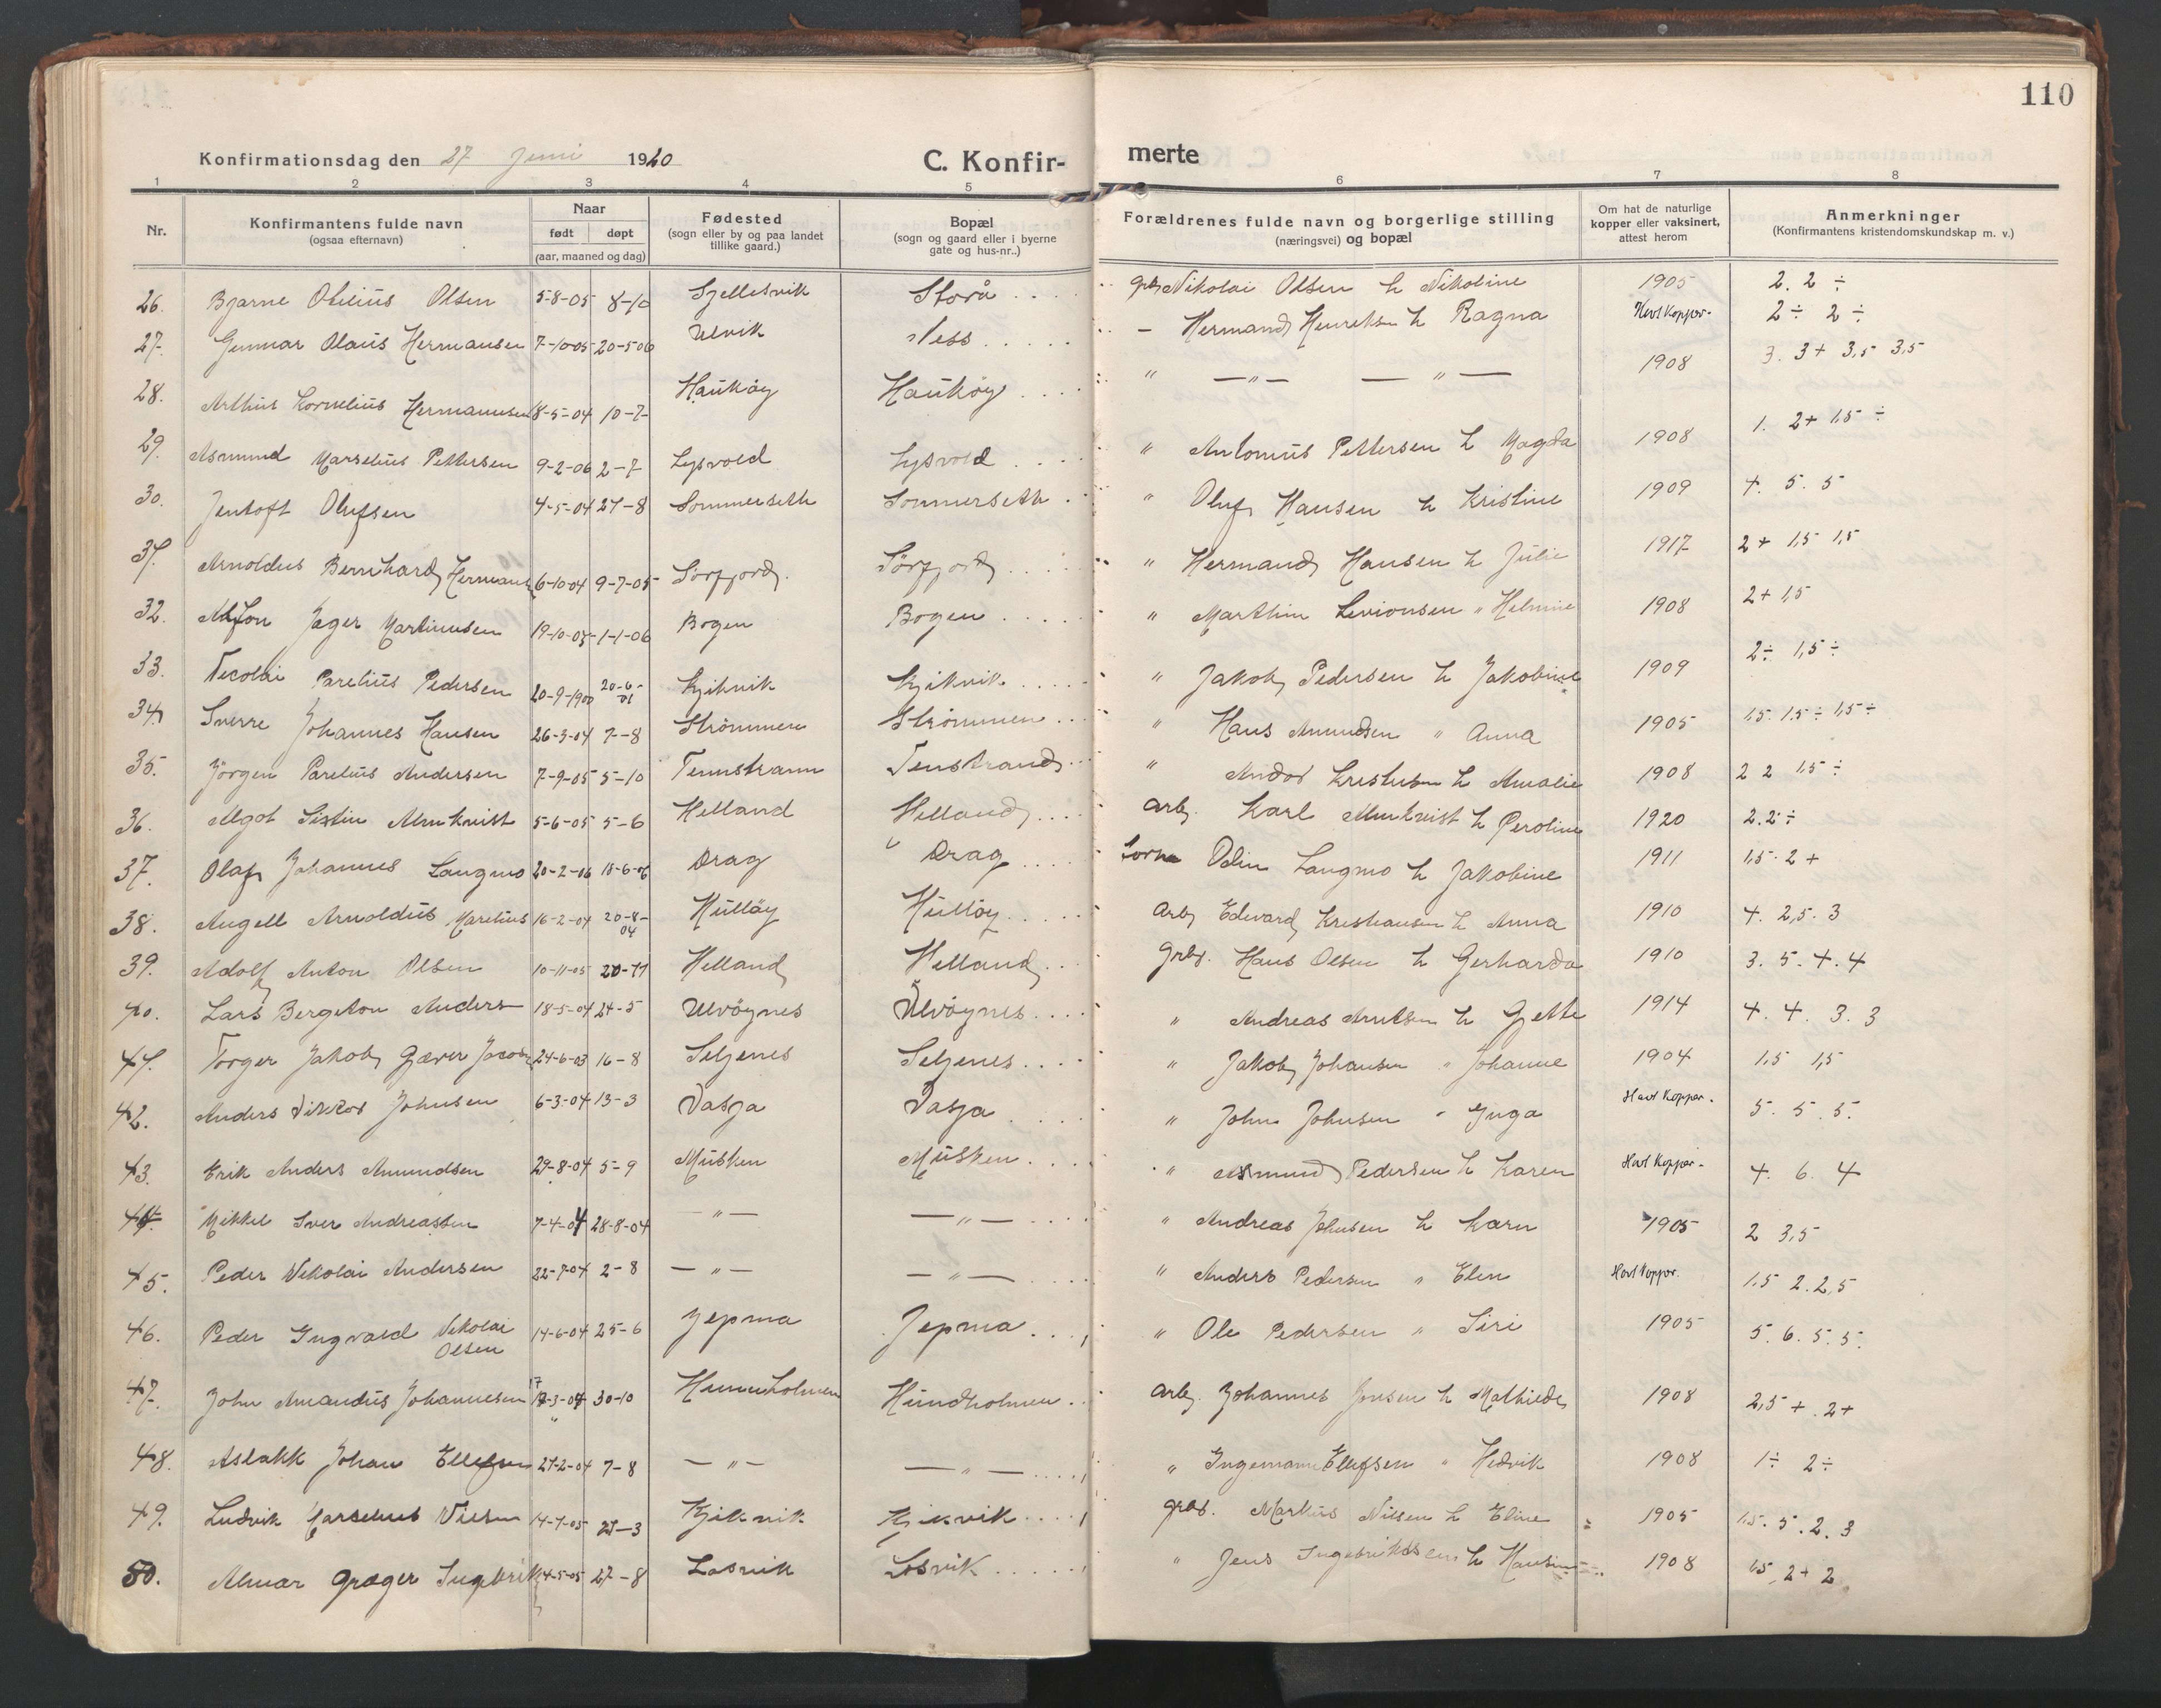 110
Konfirmationsdag den 27 Juni 1920 C. Konfir- merte
1 2 3 4 5 6 7 8
Nr. Konfirmantens fulde navn (ogsaa efternavn) Naar født døpt (aar, maaned og dag) Fødested (sogn eller by og paa landet tillike gaard.) Bopæl (sogn og gaard eller i byerne gate og hus-nr..) Forældrenes fulde navn og borgerlige stilling (næringsvei) og bopæl Om hat de naturlige kopper eller vaksinert, attest herom Anmerkninger (Konfirmantens kristendomskundskap m. v.)
26. Bjarne Otelius Olsen 5-8-05 8-10 Sjellesvik Storå gbr Nikolai Olsen h Nikoline 1905 2. 2 ÷
27. Gunnar Olaus Hermansen 7-10-05 20-5-06 Ulvik Ness — Hermand Henriksen h Ragna Havt Kopper. 2÷ 2÷
28. Arthur Kornelius Hermannsen 18-5-04 10-7- Haukøy Haukøy " —"— — " — 1908 3. 3+ 3,5 3,5
29. Asmund Marselius Pettersen 9-2-06 2-7 Lysvold Lysvold " Antonius Pettersen h Magda 1908 1. 2+ 1,5 ÷
30. Jentoft Olufsen 4-5-04 27-8 Sommerseth Sommerseth " Oluf Hansen h Kristine 1909 4. 5. 5
31. Arnoldus Bernhard Hermans 6-10-04 9-7-05 Sørfjord. Sørfjord " Hermand Hansen h Julie 1917 2+ 1,5 1,5
32. Jæger Martinusen 19-10-05 1-1-06 Bogen Bogen " Marthin Levionsen " Helmine 1908 2+ 1,5
33. Nicolai Parelius Pedersen 20-9-1900 20-6-01 Kjikvik Kjikvik " Jakob Pedersen h Jakobine 1909 2÷ 1,5÷
34 Sverre Johannes Hansen 26-3-04 7-8 Strømmen Strømmen " Hans Amundsen " Anna 1905 1,5. 1,5÷ 1,5÷
35. Jørgen Parelius Andersen 7-9-05 5-10 Tennstrann Tenstrand " Andor Kristensen h Amalie 1908 2 2 1,5 ÷
36. Algot Sixtin Almkvist 5-6-05 5-6 Helland Helland arb. Karl Almkvist h Peroline 1920 2.2÷
37. Olaf Johannes Langmo 20-2-06 18-6-06 Drag Drag Odin Langmo h Jakobine 1911 1,5. 2+
38. Angell Arnoldus Marelius 16-2-04 20-8-04 Hulløy Hulløy Arb Edvard Kristiansen h Anna 1910 4. 2,5. 3
39. Adolf Anton Olsen 10-11-05 20-11 Helland Helland grbr. Hans Olsen h Gerharda 1910 3. 5. 4. 4
40. Lars Bergeton Anders 18-5-04 24-5 Ulvøynes Ulvøynes " Andreas Amtsen h Gjette 1914 4. 4. 3. 3
41. Torger Jakob Gæver Jacobs 24-6-03 16-8 Seljenes Seljenes " Jakob Johansen " Johanne 1904 1,5 1,5
42. Anders Viktor Johnsen 6-3-04 13-3 Vasja Vasja " John Johnsen " Inga Havt Kopper. 5. 5. 5.
43. Erik Anders Amundsen 29-8-04 5-9 Musken Musken " Asmund Pedersen h Karen Havt Kopper. 4. 6. 4
44. Mikkel Iver Andreassen 7-4-04 28-8-04 —"— —"— " Andreas Johnsen h Karn 1905 2 3,5
45. Peder Nikolai Andersen 22-7-04 2-8 —"— —"— " Anders Pedersen " Elen Havt Kopper. 1,5 2. 2,5
46. Peder Ingvald Nikolai Olsen 14-6-04 25-6 Jepma Jepma " Ole Pedersen " Siri 1905 5. 6. 5. 5.
47. John Amandus Johannesen 17-3-04 30-10 Hunnholmen Hundholmen arb. Johannes Jensen h Mathilde 1908 2,5+. 2+
48. Aslakk Johan Ellefsen 27-2-04 7-8 —"— —"— " Ingemann Ellefsen " Hedvik 1908 1÷ 2÷
49. Ludvik Marselius Nilsen 14-7-05 27-3 Kjikvik Kjikvik grbr. Markus Nilsen h Eline 1905 1,5. 5. 2. 3
50. Almar Græger Ingebrik 4-5-05 27-8 Losvik Losvik " Jens Ingebriktsen h Hansine 1908 1,5 2+ 2